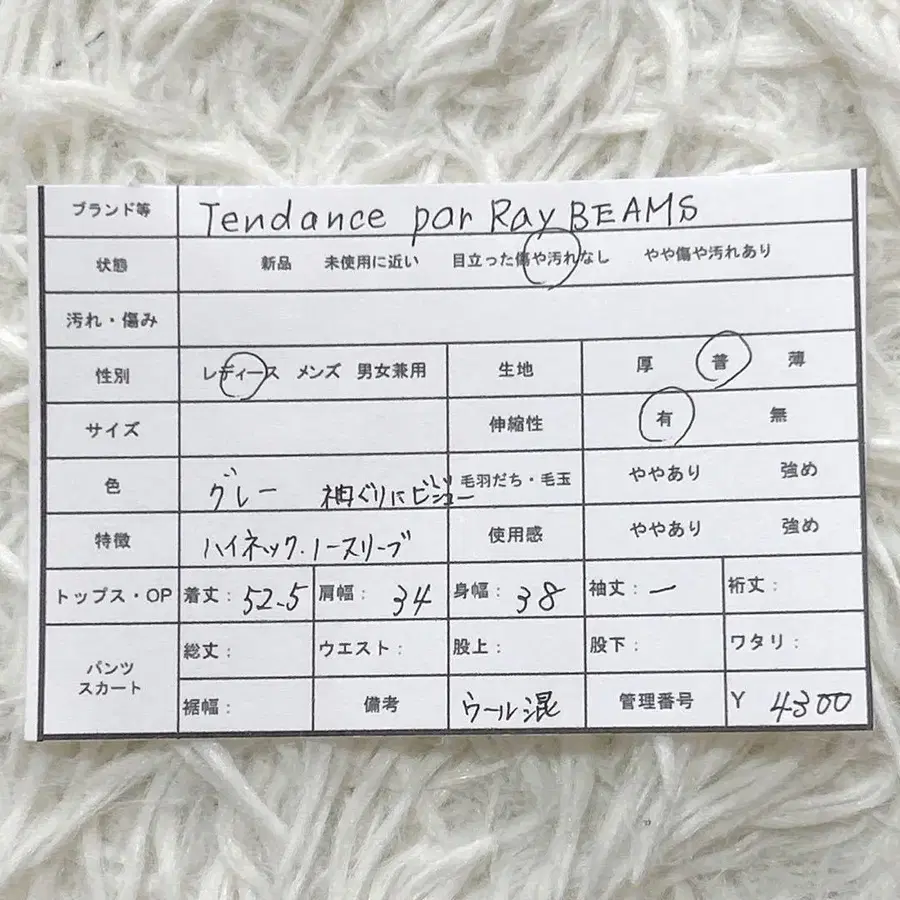 ブランド等 Tendance par Ray BEAMS
状態 新品 未使用に近い 目立った傷や汚れなし やや傷や汚れあり
汚れ・傷み
性別 レディース メンズ 男女兼用 生地 厚 普 薄
サイズ 伸縮性 有 無
色 グレー 袖ぐりにビジュー 毛羽だち・毛玉 ややあり 強め
特徴 ハイネック・ノースリーブ 使用感 ややあり 強め
トップス・OP 着丈: 52.5 肩幅: 34 身幅: 38 袖丈: ー 裄丈:
パンツ スカート 総丈: ウエスト: 股上: 股下: ワタリ:
裾幅: 備考 ウール混 管理番号 Y 4300